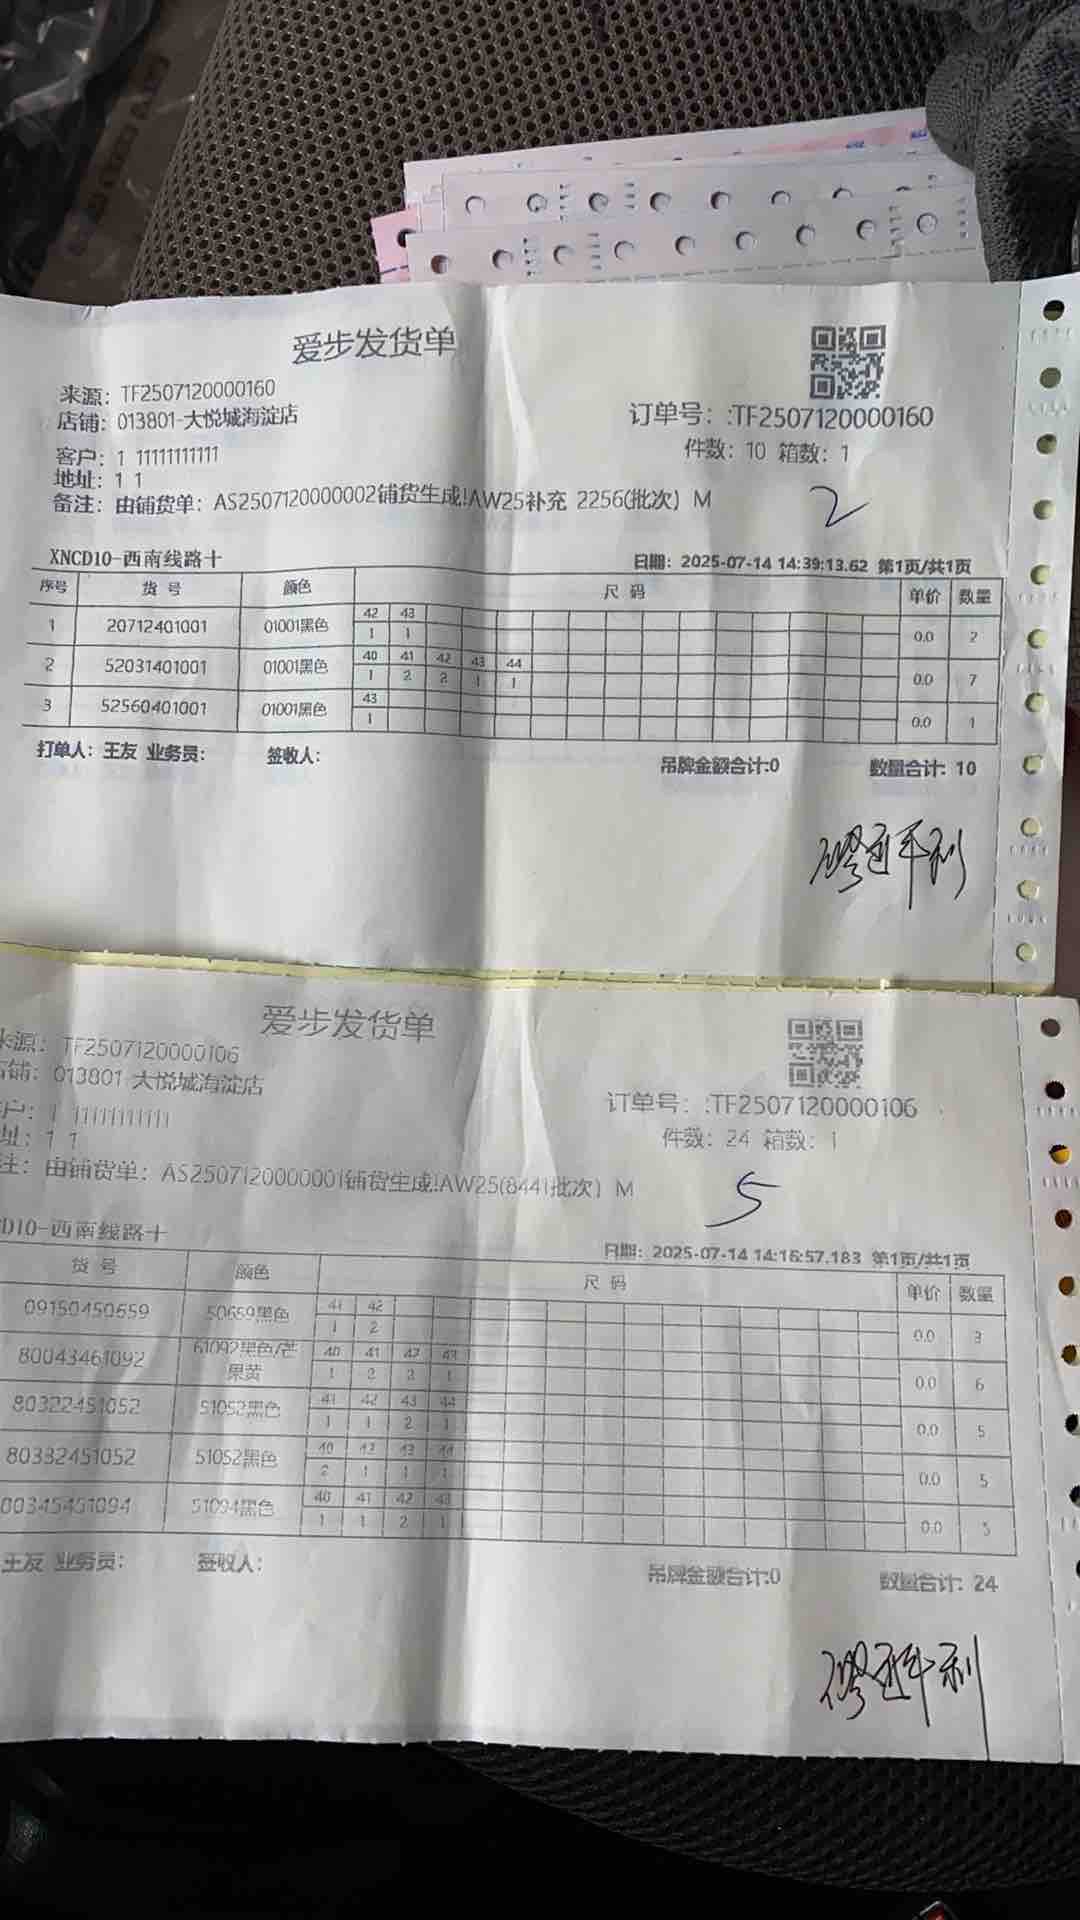 爱步发货单
来源：TF2507120000160
店铺：013801-大悦城海淀店
订单号：:TF2507120000160
客户：1 11111111111
件数：10 箱数：1
地址：1 1
备注：由铺货单：AS2507120000002铺货生成!AW25补充 2256(批次）M
2
XNCD10-西南线路十
日期：2025-07-14 14:39:13.62 第1页/共1页
序号 货 号 颜色 尺 码 单价 数量
42 43
1 20712401001 01001黑色 1 1 0.0 2
40 41 42 43 44
2 52031401001 01001黑色 1 2 2 1 1 0.0 7
43
3 52560401001 01001黑色 1 0.0 1
打单人：王友 业务员： 签收人： 吊牌金额合计:0 数量合计: 10
爱步发货单
来源：TF2507120000106
店铺：013801-大悦城海淀店
订单号：:TF2507120000106
户：1 11111111111
件数：24 箱数：1
址：1 1
注：由铺货单：AS2507120000001铺货生成!AW25(8441批次）M
5
D10-西南线路十
日期：2025-07-14 14:16:57.183 第1页/共1页
货 号 颜色 尺 码 单价 数量
41 42
09150450659 50659黑色 1 2 0.0 3
40 41 42 43
80043461092 61092黑色/芒果黄 1 2 2 1 0.0 6
41 42 43 44
80322451052 51052黑色 1 1 2 1 0.0 5
40 42 43 44
80332451052 51052黑色 2 1 1 1 0.0 5
40 41 42 43
00345451094 51094黑色 1 1 2 1 0.0 5
王友 业务员： 签收人： 吊牌金额合计:0 数量合计: 24